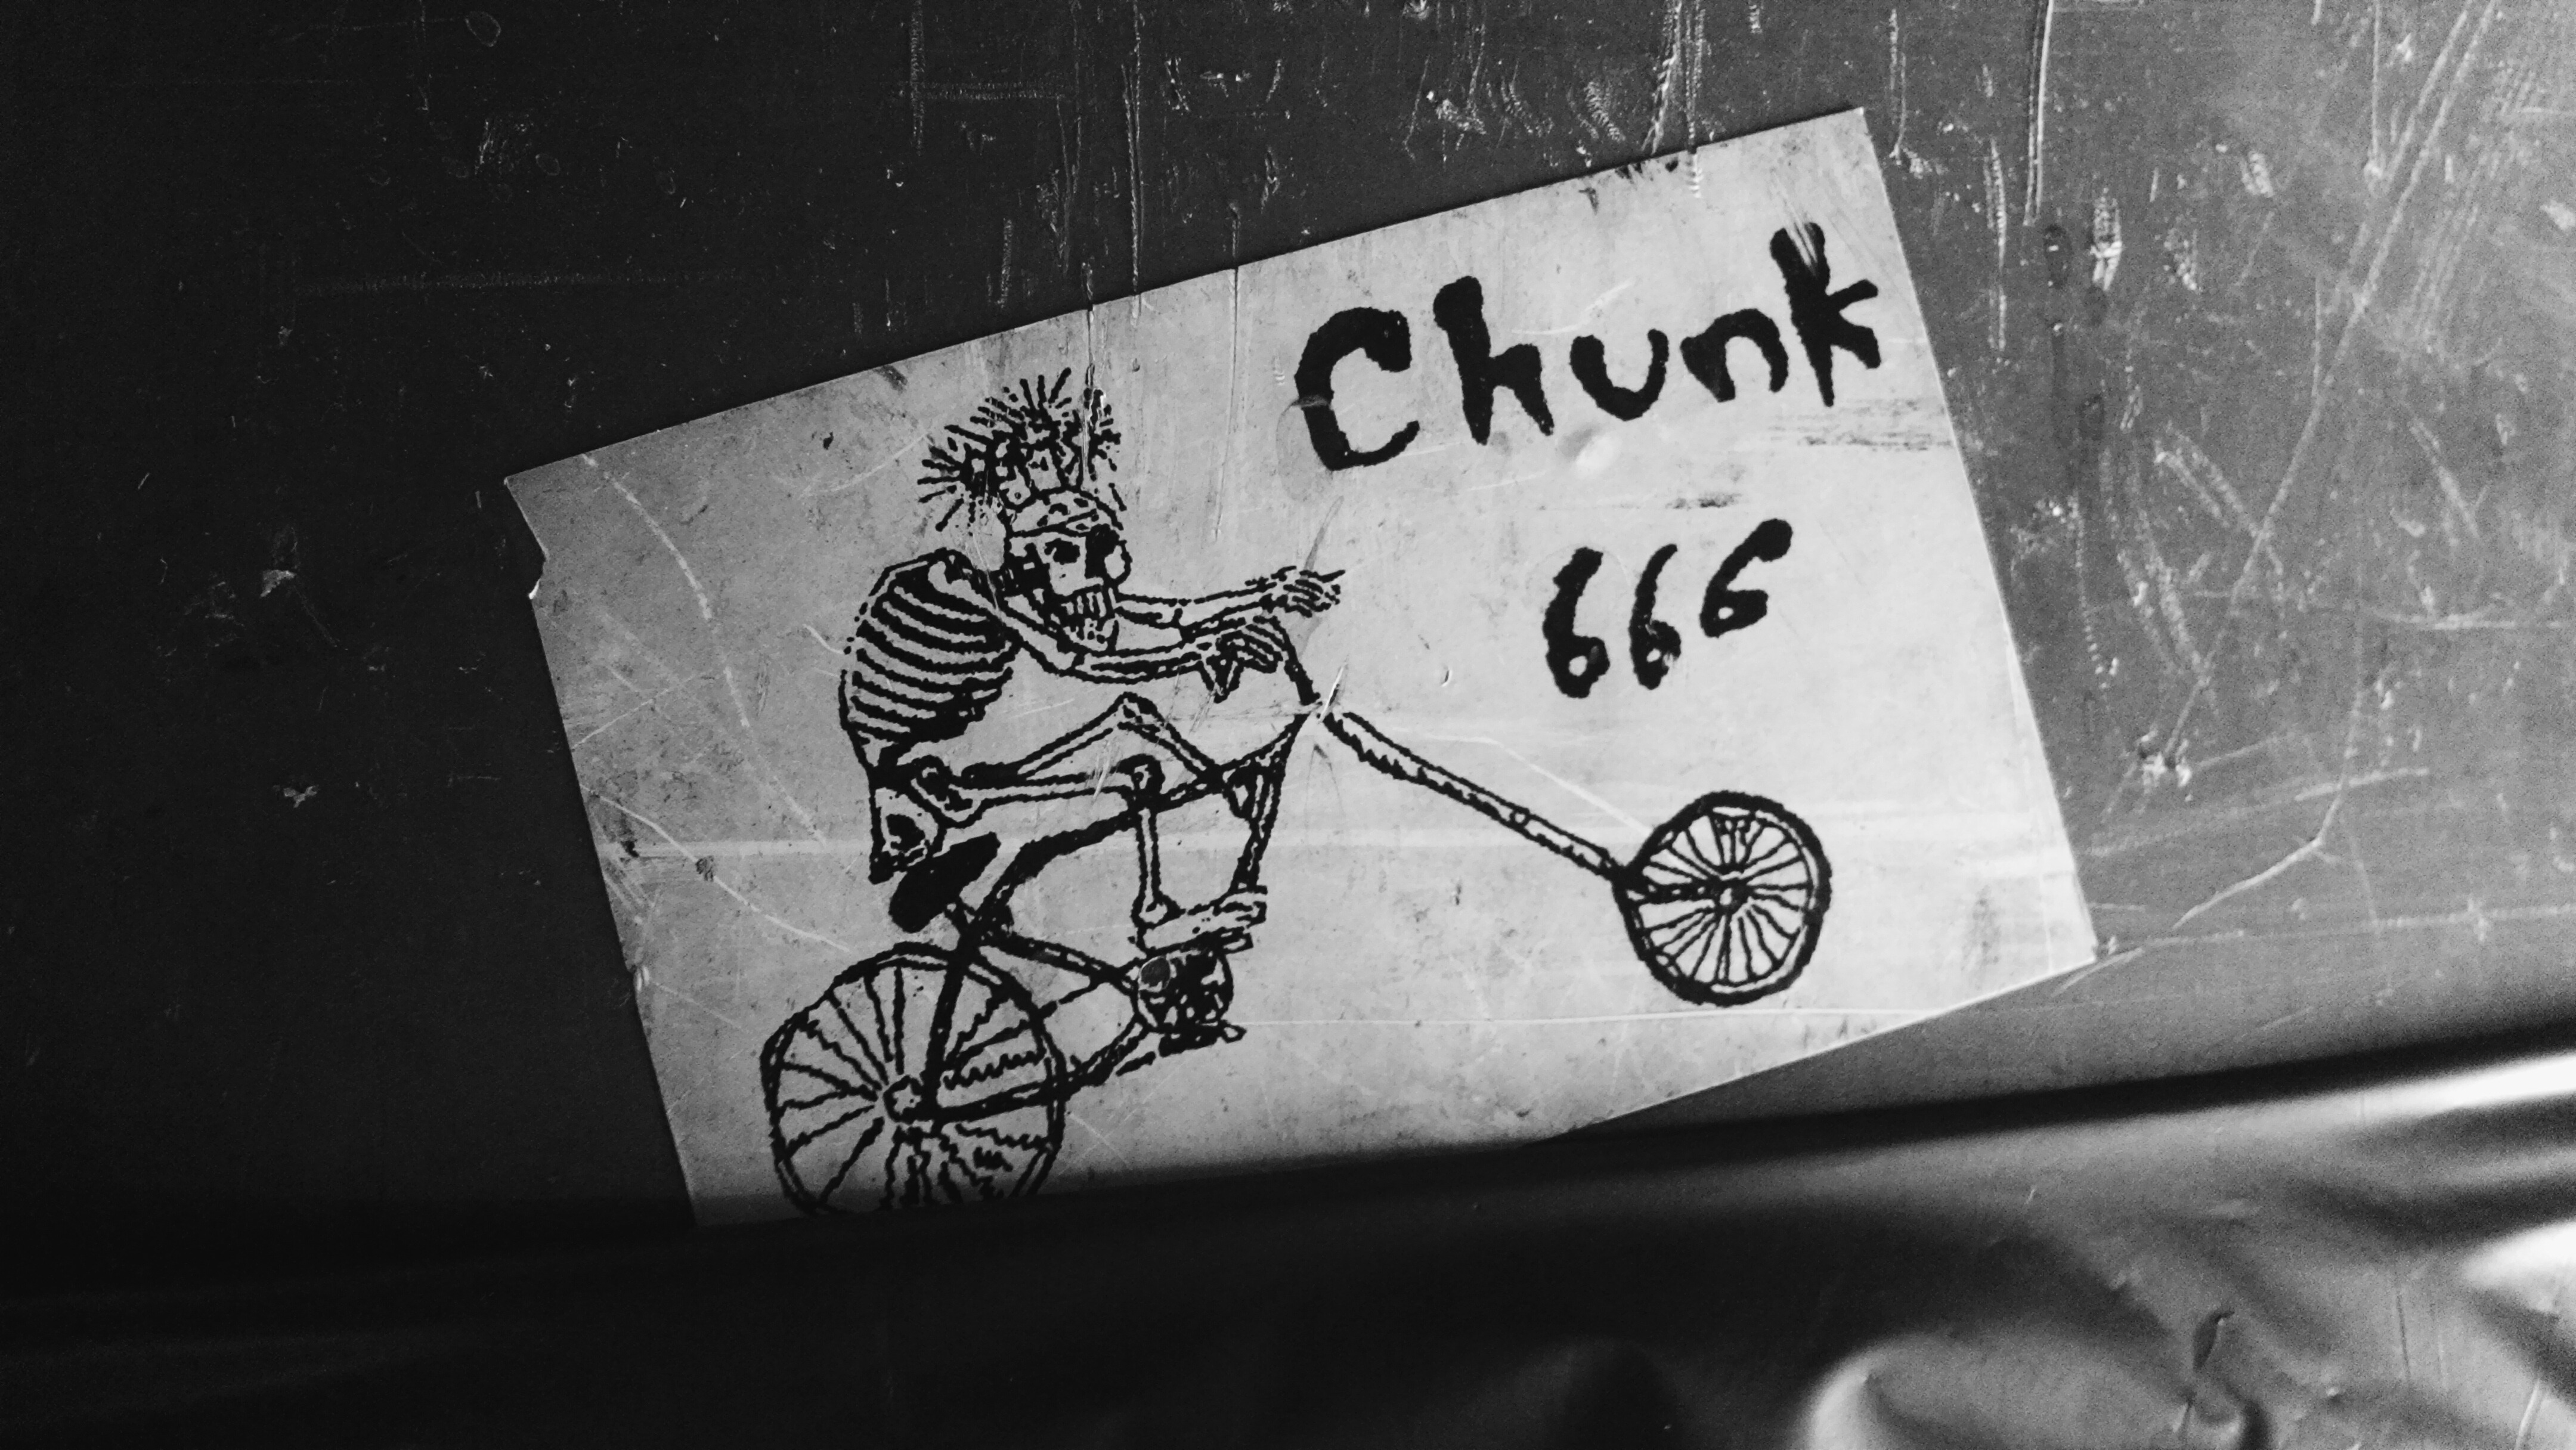 Chunk
666